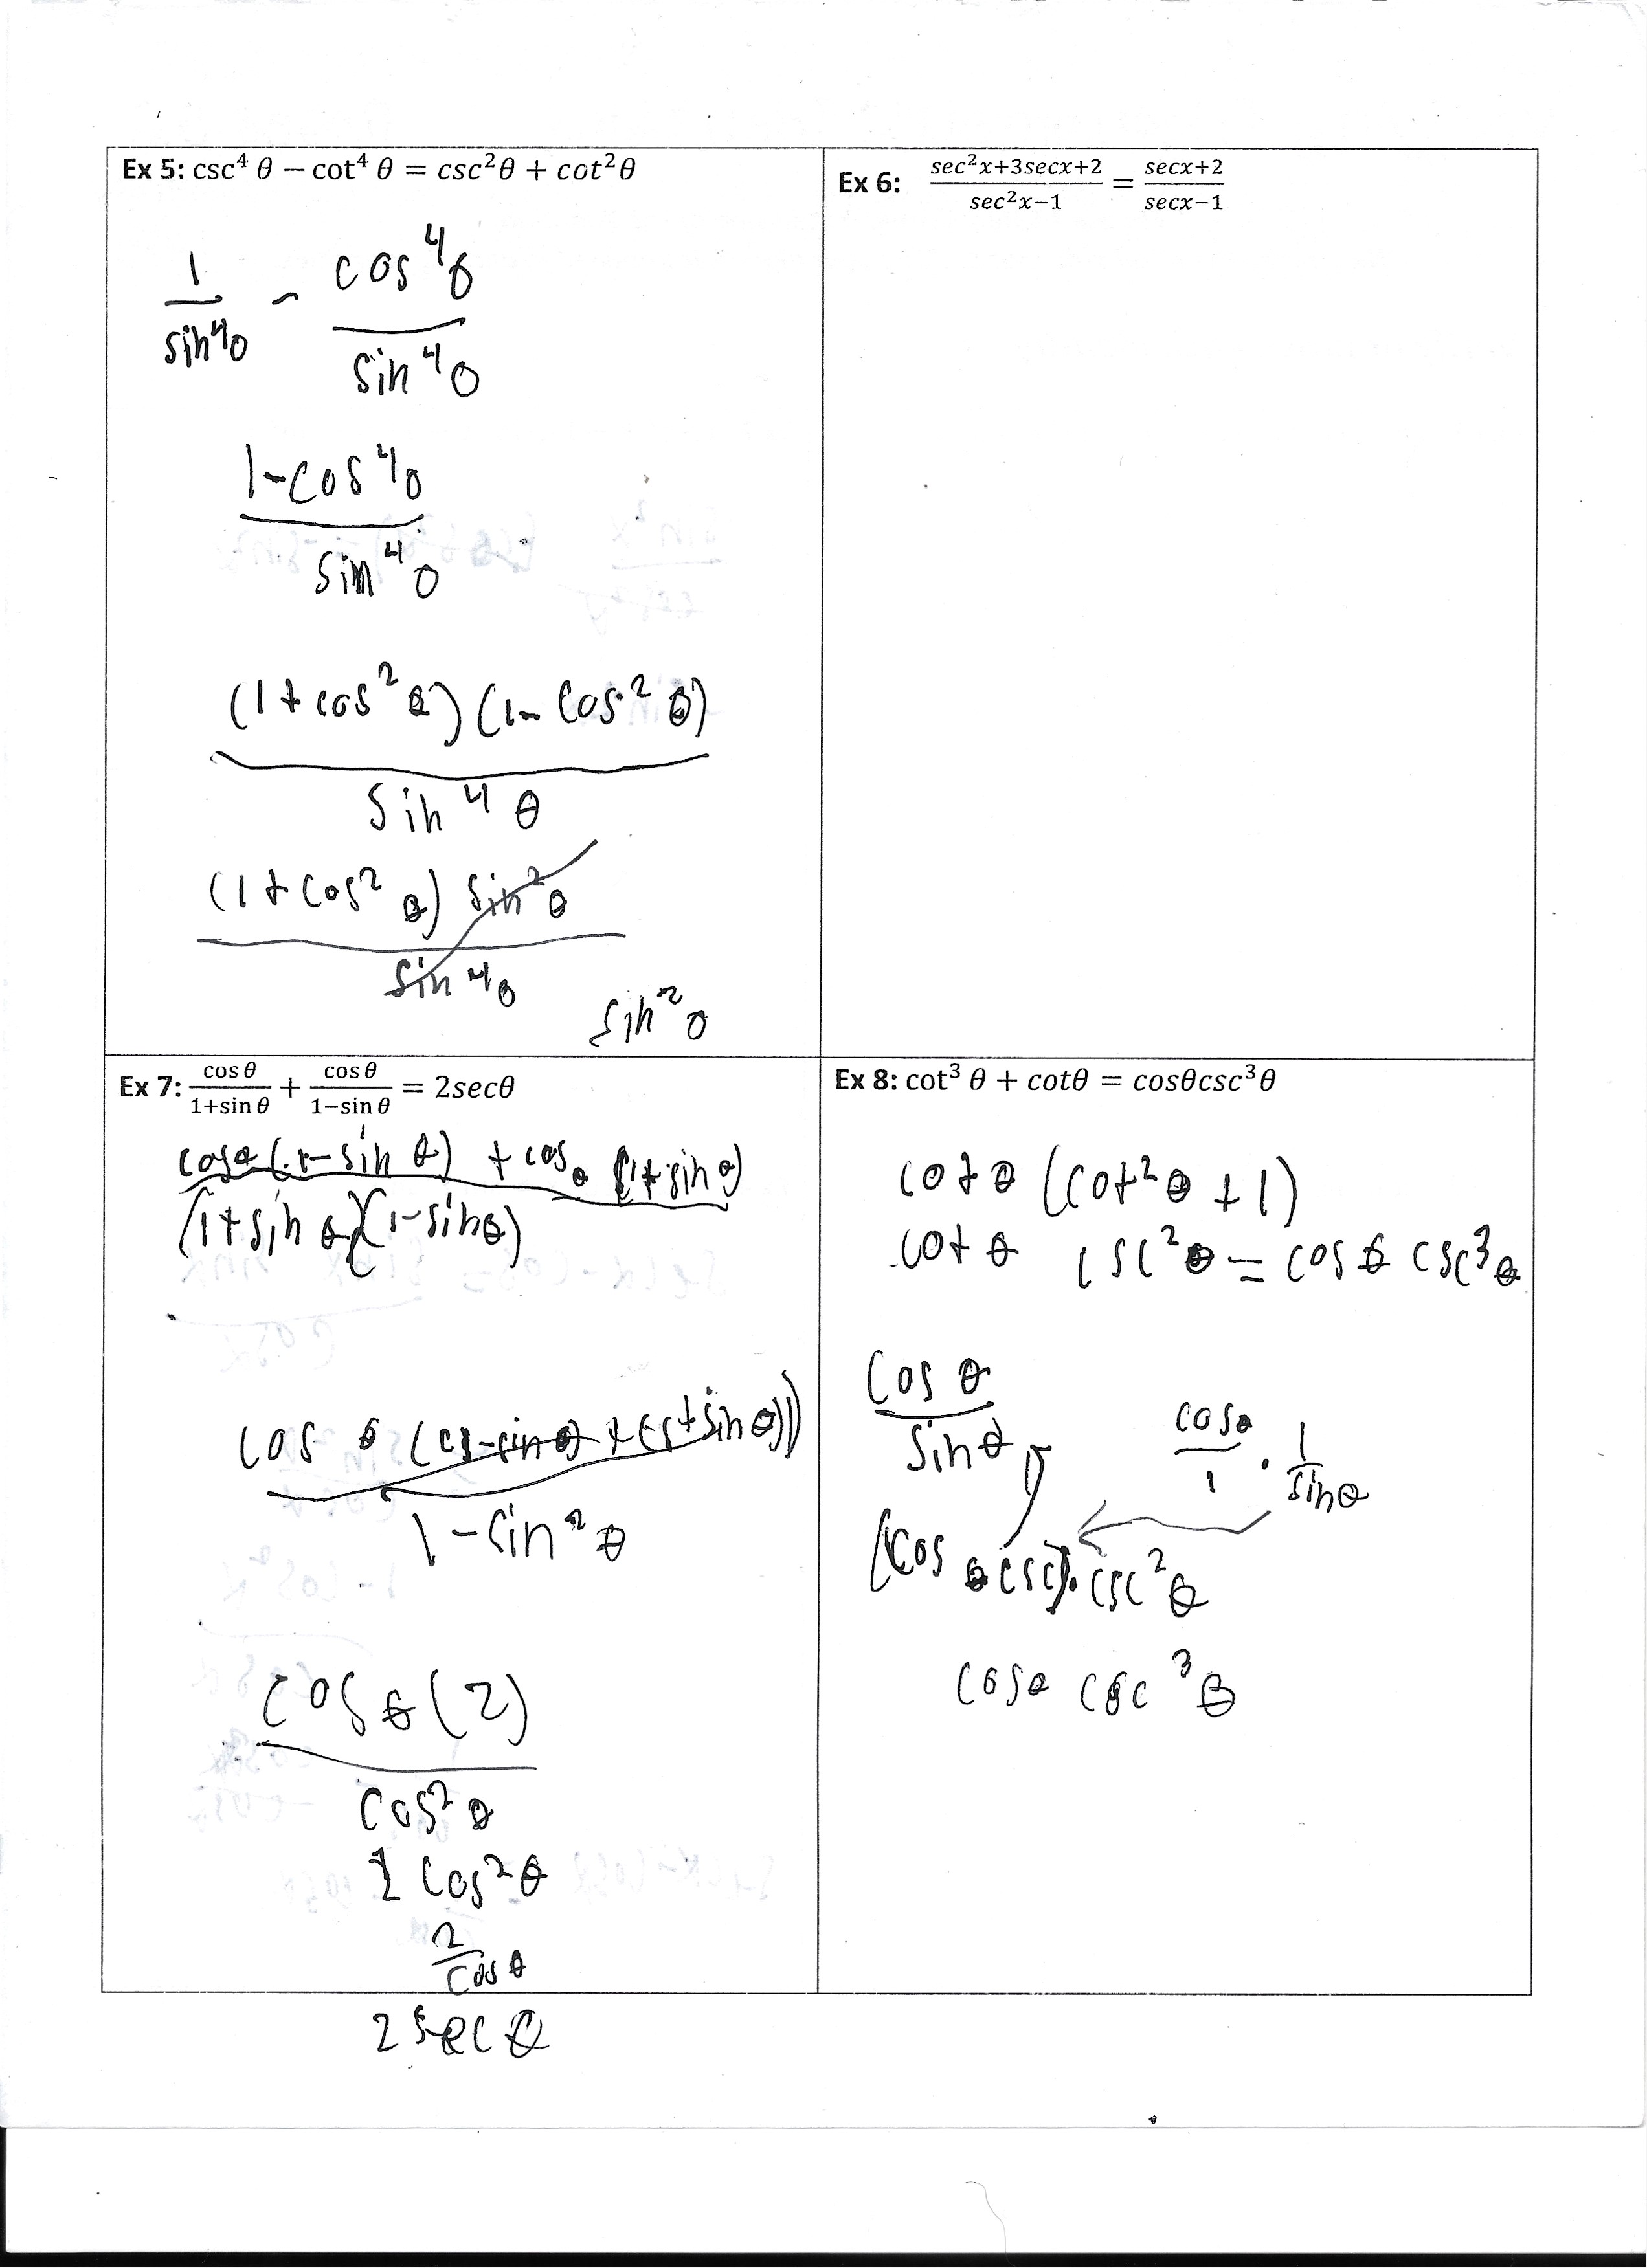 Ex 5: csc⁴ θ − cot⁴ θ = csc²θ + cot²θ
1/sin⁴θ - cos⁴θ/sin⁴θ
1-cos⁴θ
sin⁴θ
(1+cos²θ)(1-cos²θ)
sin⁴θ
(1+cos²θ) sin²θ
sin⁴θ
sin²θ
Ex 6: sec²x+3secx+2/sec²x−1 = secx+2/secx−1
Ex 7: cos θ/1+sin θ + cos θ/1−sin θ = 2secθ
cosθ(1-sinθ) + cosθ(1+sinθ)
(1+sinθ)(1-sinθ)
cosθ((1-sinθ)+(1+sinθ))
1-sin²θ
cosθ(2)
cos²θ
2 cos²θ
2
cosθ
2 secθ
Ex 8: cot³ θ + cotθ = cosθcsc³θ
cotθ(cot²θ+1)
cotθ csc²θ = cosθ csc³θ
cosθ
sinθ
cosθ/1 · 1/sinθ
(cosθ csc)·csc²θ
cosθ csc³θ